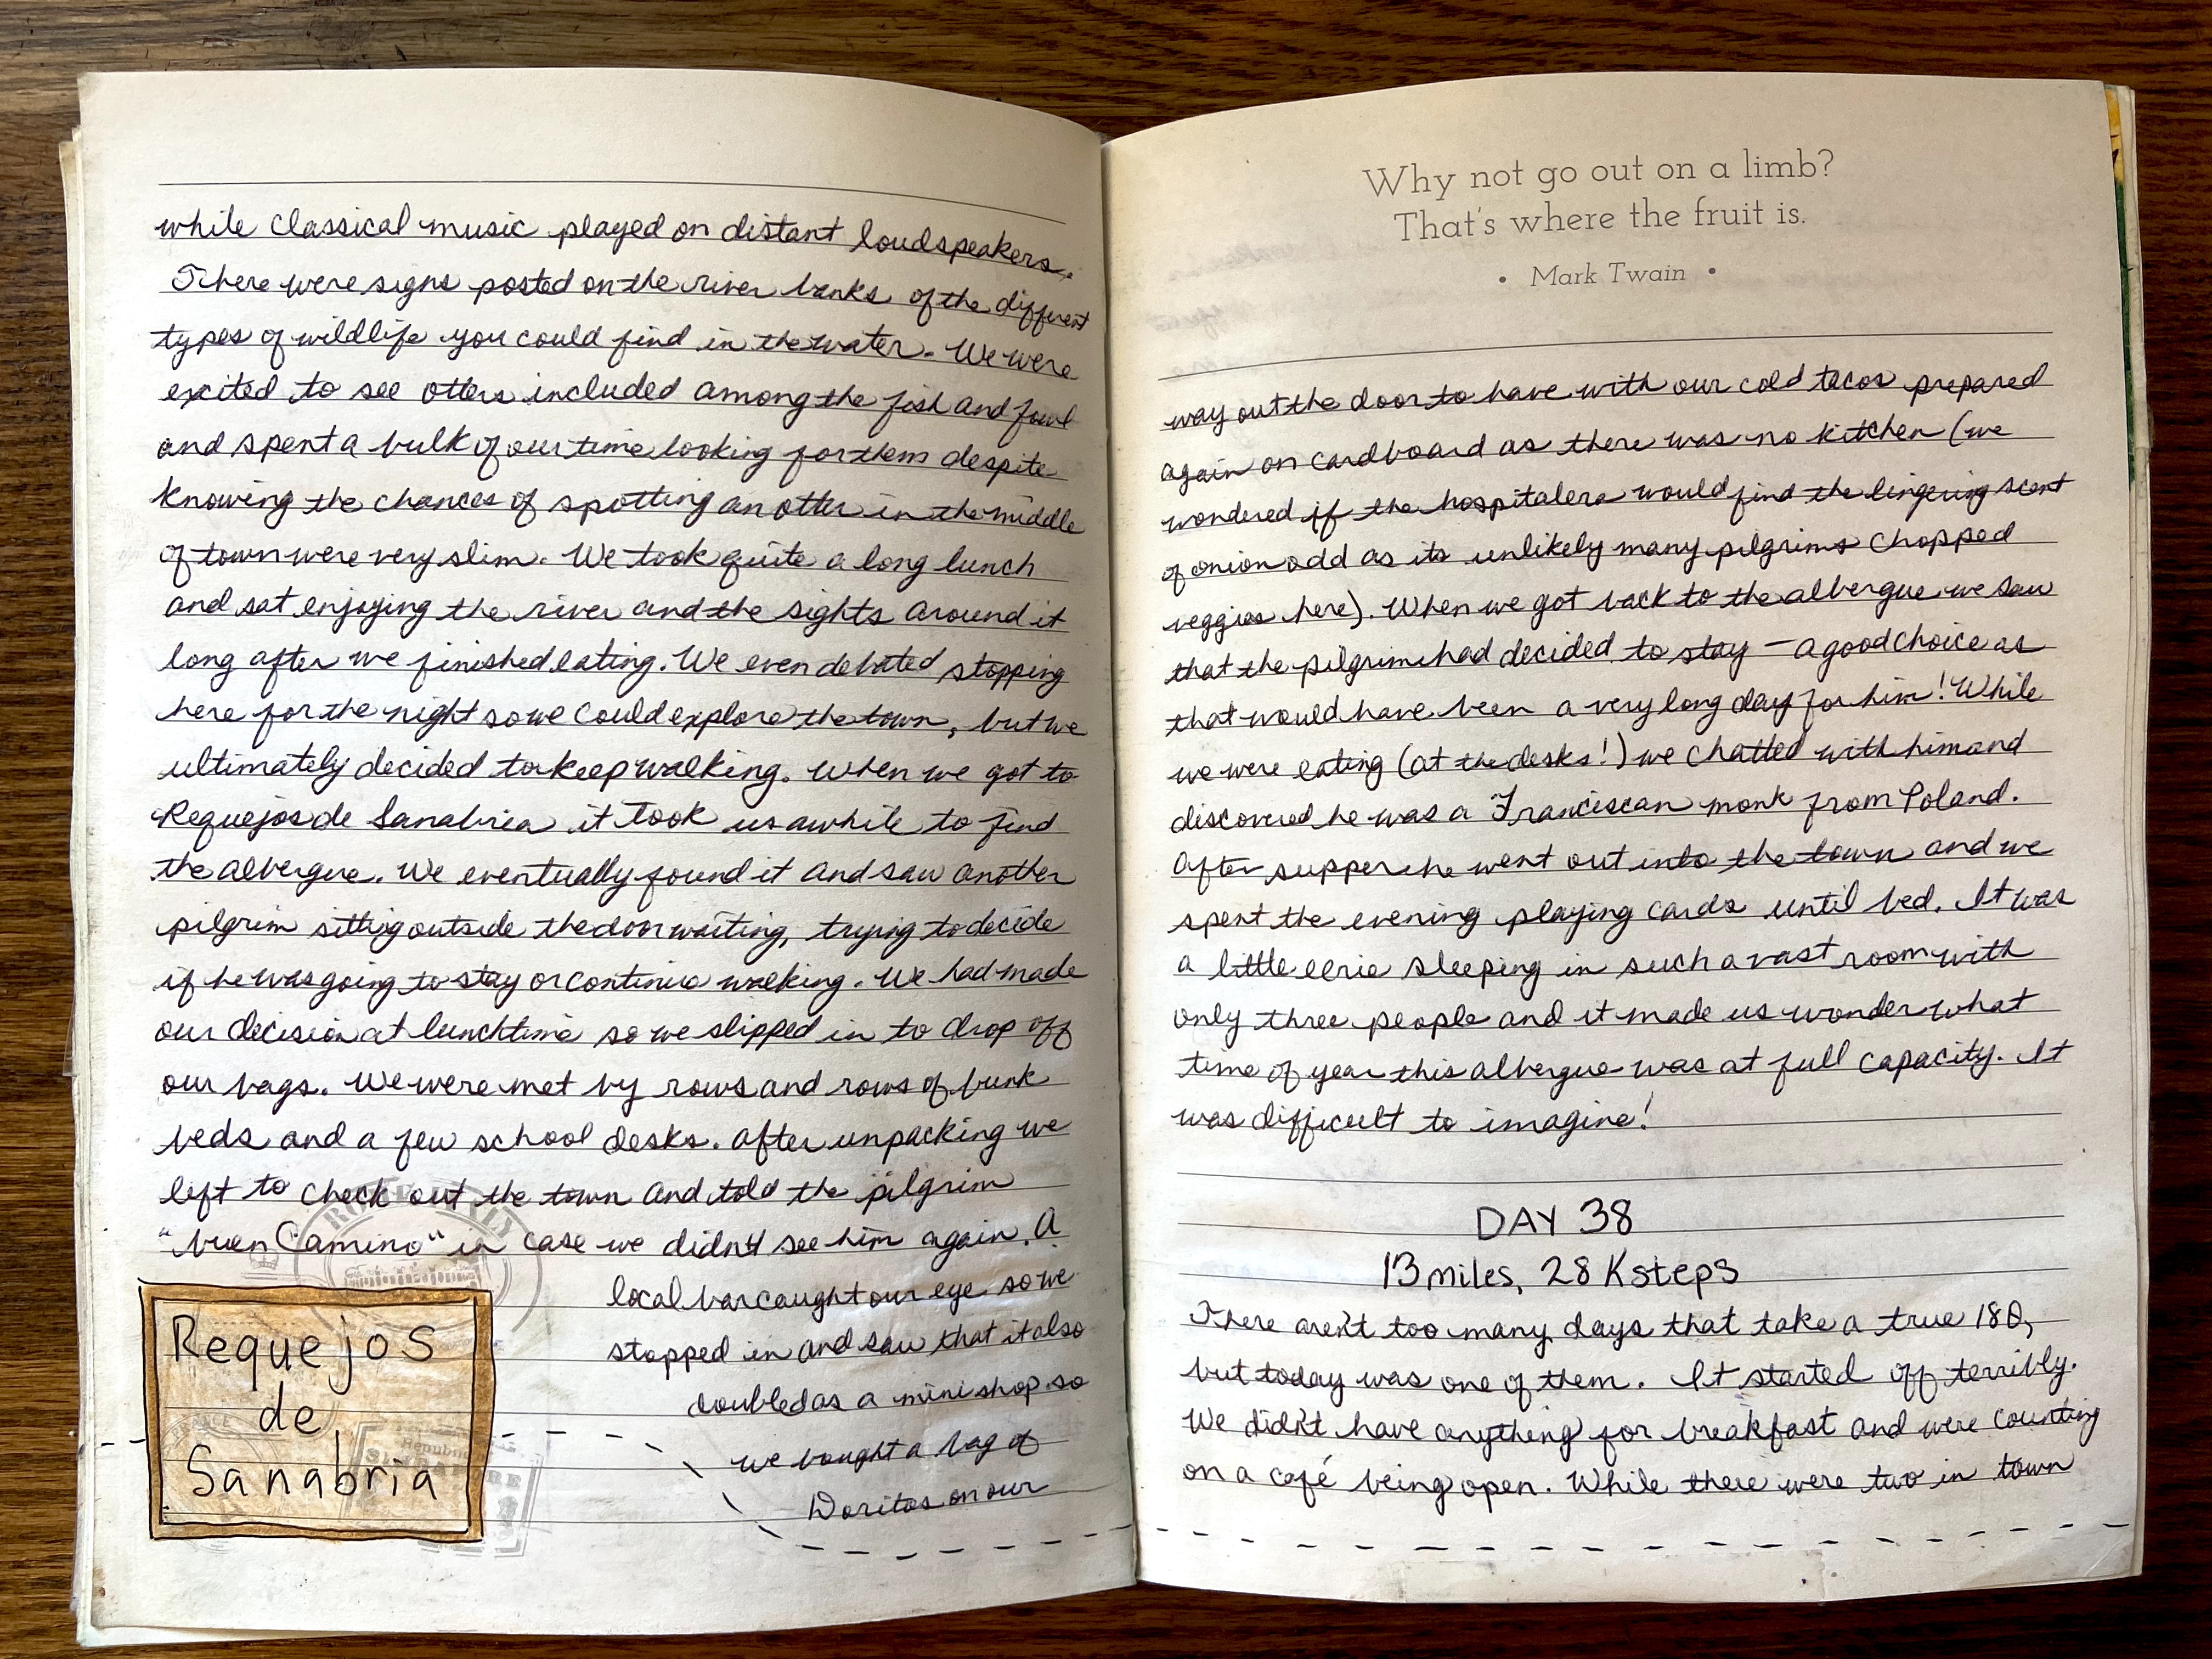 while classical music played on distant loudspeakers.
There were signs posted on the river banks of the different
types of wildlife you could find in the water. We were
excited to see otters included among the fish and fowl
and spent a bulk of our time looking for them despite
knowing the chances of spotting an otter in the middle
of town were very slim. We took quite a long lunch
and sat enjoying the river and the sights around it
long after we finished eating. We even debated stopping
here for the night so we could explore the town, but we
ultimately decided to keep walking. When we got to
Requejos de Sanabria it took us awhile to find
the albergue. We eventually found it and saw another
pilgrim sitting outside the door waiting, trying to decide
if he was going to stay or continue walking. We had made
our decision at lunchtime so we slipped in to drop off
our bags. We were met by rows and rows of bunk
beds and a few school desks. After unpacking we
left to check out the town and told the pilgrim
"buen Camino" in case we didn't see him again. A
local bar caught our eye so we
stopped in and saw that it also
doubled as a mini shop so
we bought a bag of
Doritos on our
Requejos
de
Sanabria
Why not go out on a limb?
That's where the fruit is.
• Mark Twain •
way out the door to have with our cold tacos prepared
again on cardboard as there was no kitchen (we
wondered if the hospitalera would find the lingering scent
of onion odd as its unlikely many pilgrims chopped
veggies here). When we got back to the albergue we saw
that the pilgrim had decided to stay – a good choice as
that would have been a very long day for him! While
we were eating (at the desks!) we chatted with him and
discovered he was a Franciscan monk from Poland.
After supper he went out into the town and we
spent the evening playing cards until bed. It was
a little eerie sleeping in such a vast room with
only three people and it made us wonder what
time of year this albergue was at full capacity. It
was difficult to imagine!
DAY 38
13 miles, 28K steps
There aren't too many days that take a true 180,
but today was one of them. It started off terribly.
We didn't have anything for breakfast and were counting
on a café being open. While there were two in town